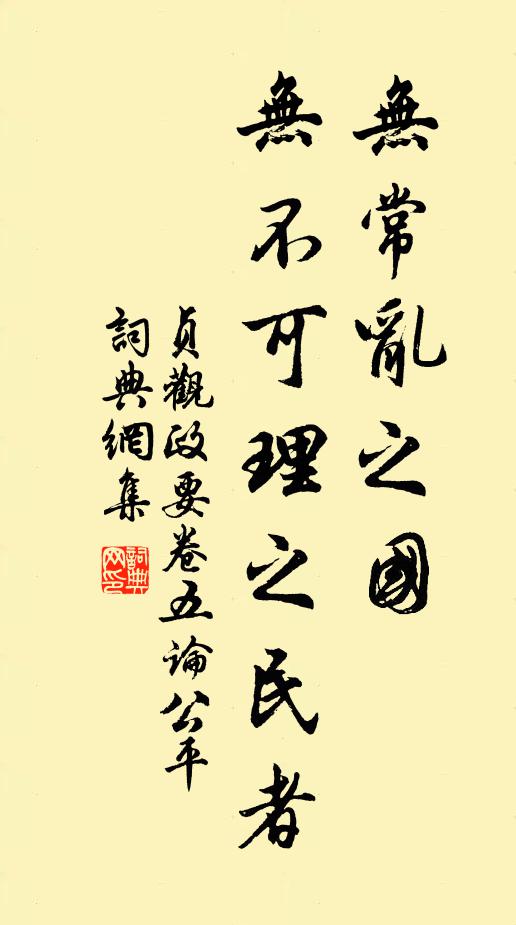 無常亂之國
無不可理之民者
貞觀政要卷五論公平
詞典網集
詞典网印